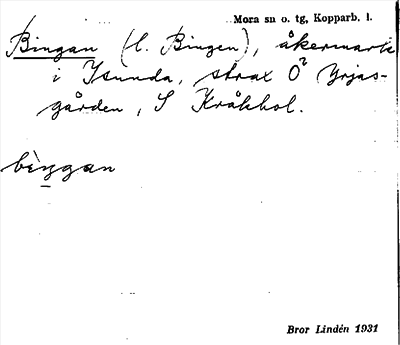 Mora sn o. tg, Kopparb. l.
Bingan (l. Bingen), åkermark
i Ysunda, strax Ö² Yrjas-
gården, S Kråkhol.
bìŋgan
Bror Lindén 1931